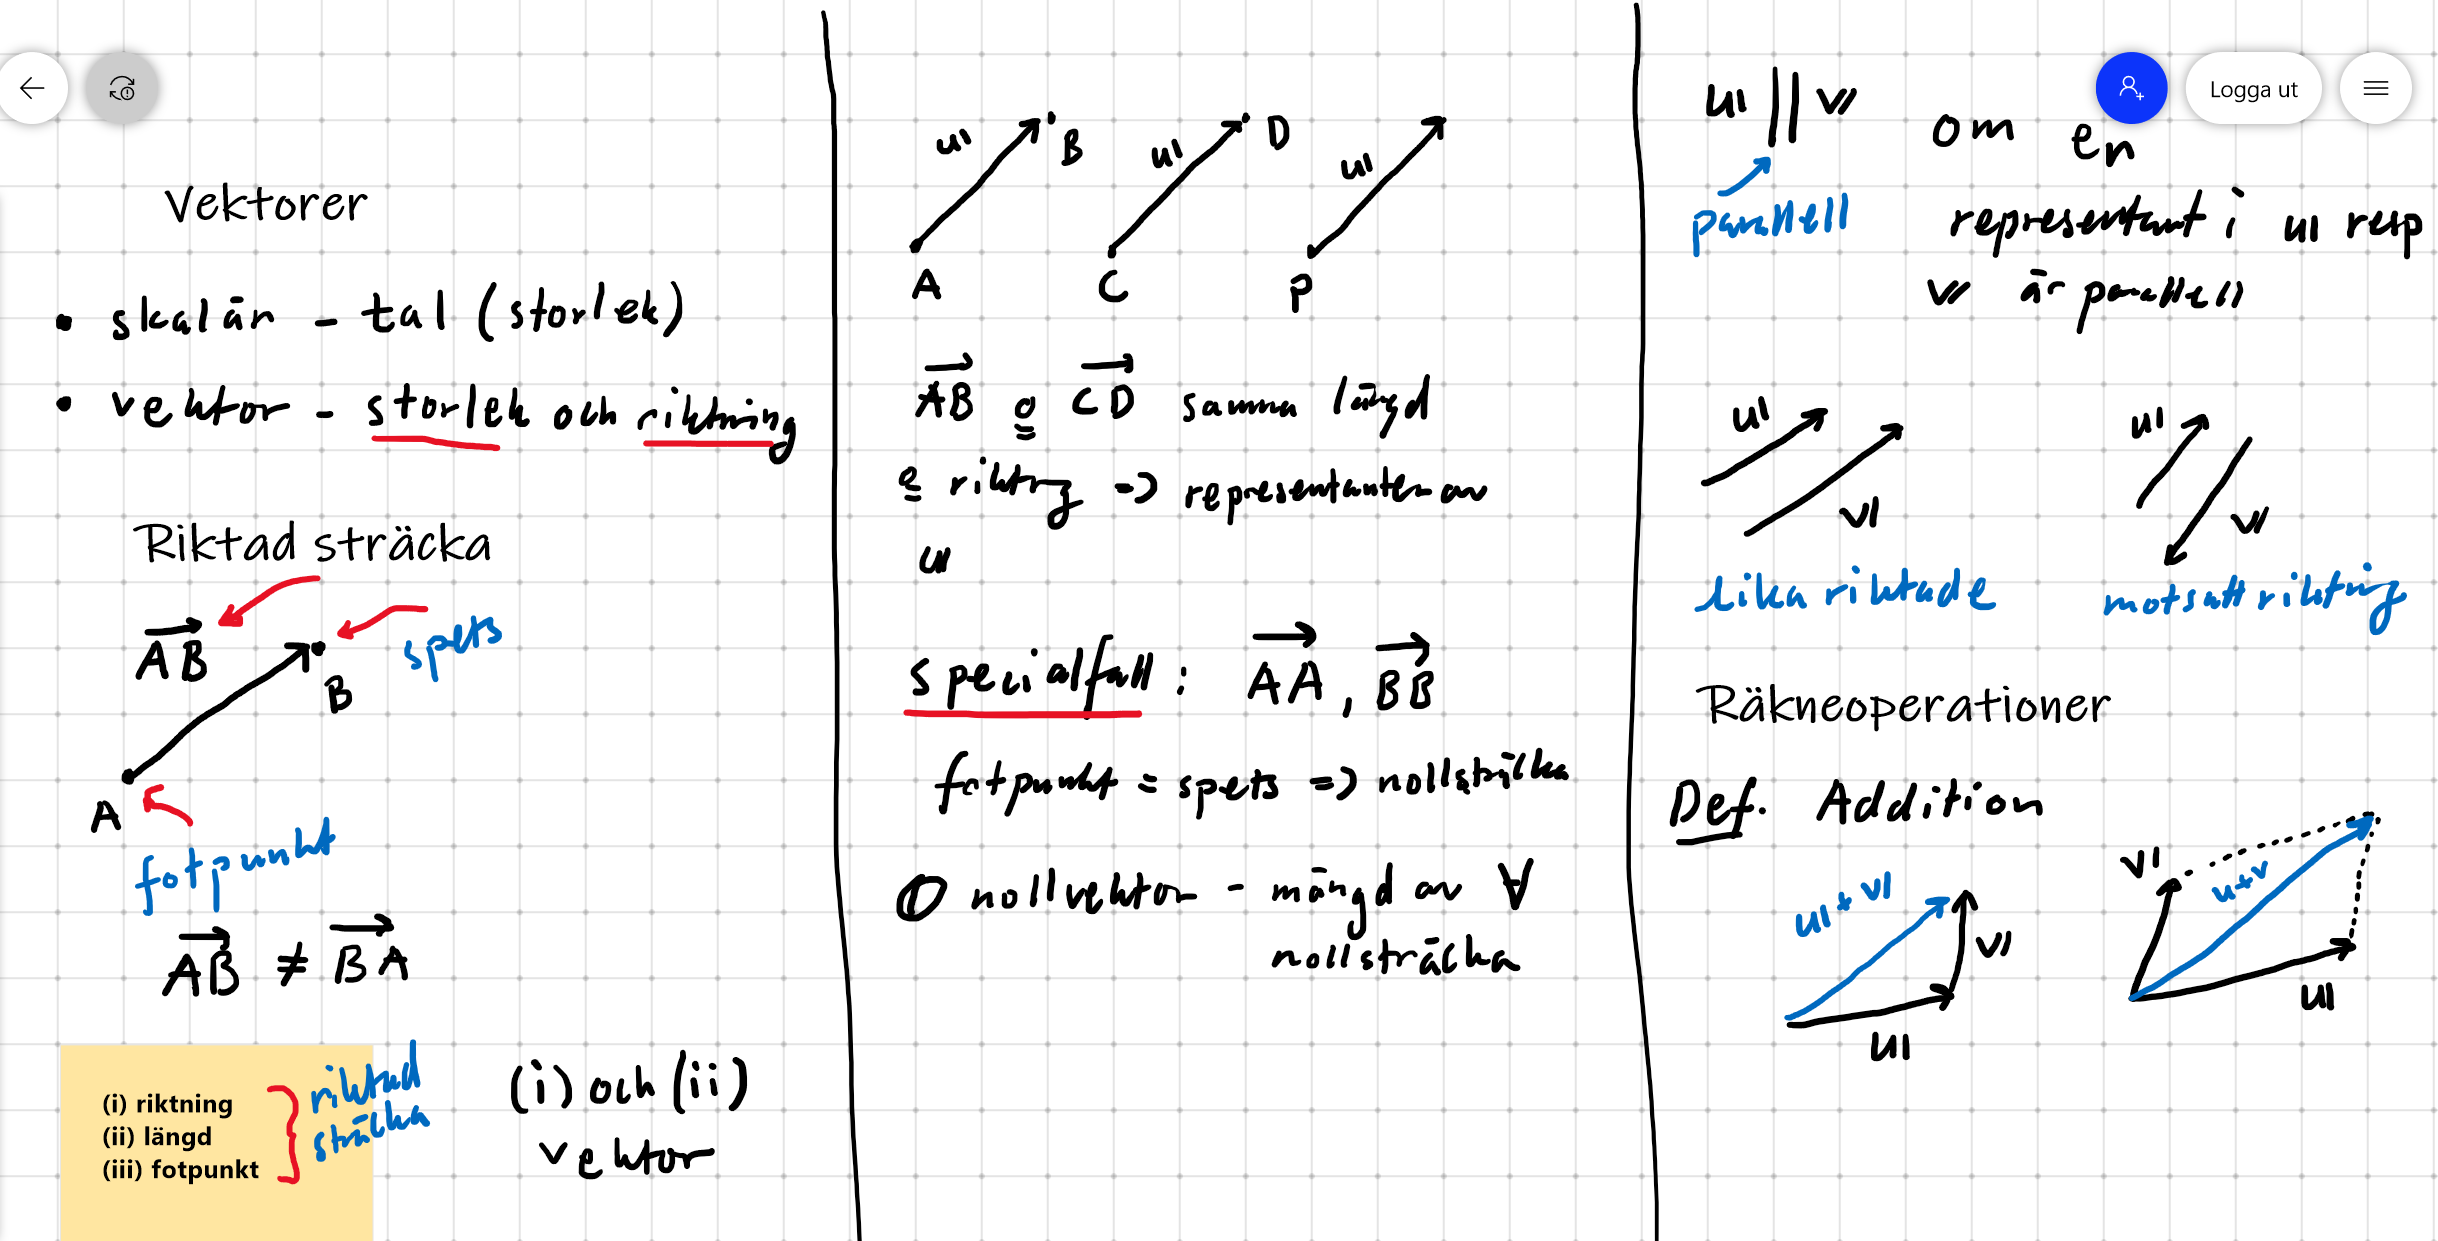 Logga ut
Vektorer
• skalär - tal (storlek)
• vektor - storlek och riktning
Riktad sträcka
AB
spets
B
A
fotpunkt
AB ≠ BA
(i) riktning
(ii) längd
(iii) fotpunkt
riktad
sträcka
(i) och (ii)
vektor
u B u D u
A C P
AB o CD samma längd
o riktng => representanter av
u
specialfall: AA, BB
fotpunkt = spets => nollsträcka
0 nollvektor - mängd av ∀
nollsträcka
u || v om en
parallell representant i u resp
v är parallell
u v
u v
lika riktade
motsatt riktnig
Räkneoperationer
Def. Addition
u + v
v
u
v
u+v
u